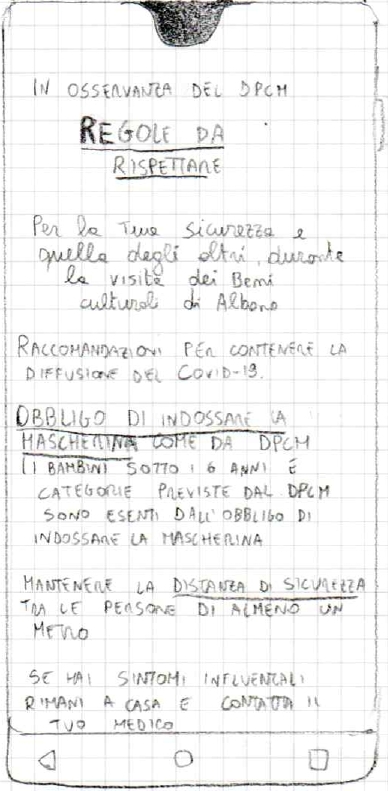 IN OSSERVANZA DEL DPCM
REGOLE DA
RISPETTARE
Per la Tua sicurezza e
quella degli altri, durante
la visita dei Beni
culturali di Albano
RACCOMANDAZIONI PER CONTENERE LA
DIFFUSIONE DEL COVID-19.
OBBLIGO DI INDOSSARE LA
MASCHERINA COME DA DPCM
(I BAMBINI SOTTO I 6 ANNI E
CATEGORIE PREVISTE DAL DPCM
SONO ESENTI DALL'OBBLIGO DI
INDOSSARE LA MASCHERINA
MANTENERE LA DISTANZA DI SICUREZZA
TRA LE PERSONE DI ALMENO UN
METRO
SE HAI SINTOMI INFLUENZALI
RIMANI A CASA E CONTATTA IL
TUO MEDICO